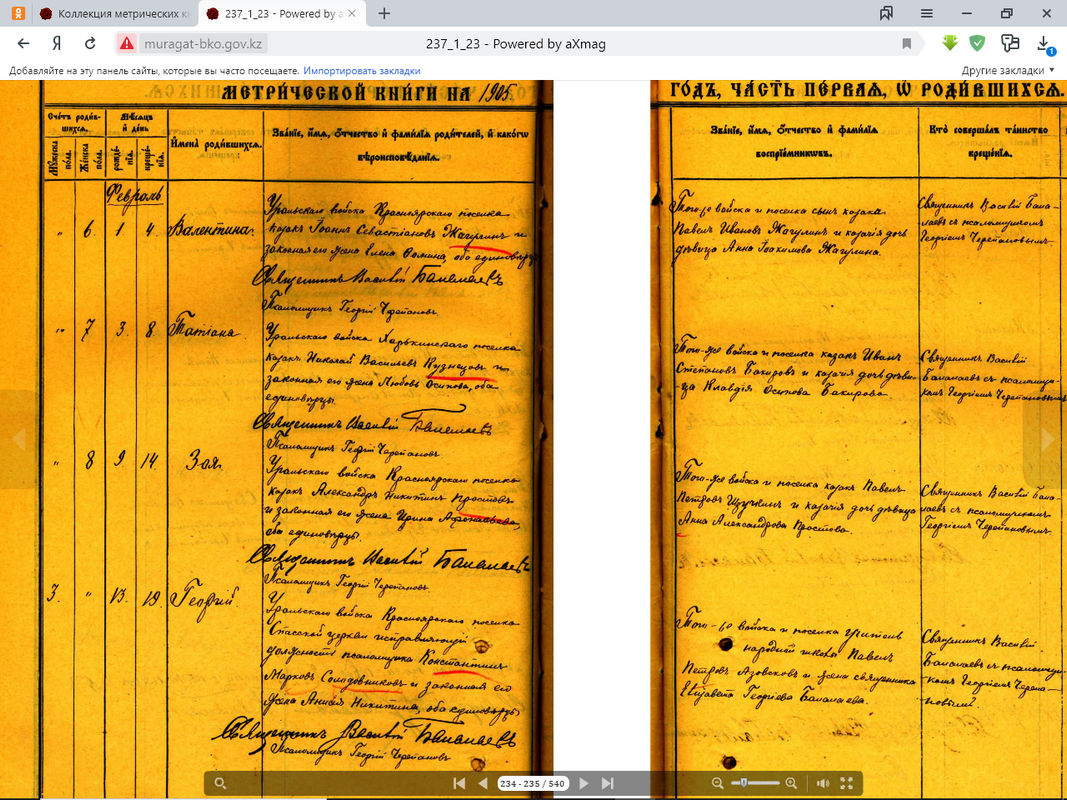 Коллекция метрических к
237_1_23 - Powered by a
muragat-bko.gov.kz
237_1_23 - Powered by aXmag
Добавляйте на эту панель сайты, которые вы часто посещаете. Импортировать закладки
Другие закладки
МЕТРИ́ЧЕСКОЙ КНИ́ГИ НА 1905
ГО́ДЪ, ЧА́СТЬ ПЕ́РВАЯ, Ѡ РОДИ́ВШИХСЯ.
Сче́тъ роди́вшихся.
Му́жеска по́ла.
Же́нска по́ла.
Мѣ́сяцъ и де́нь
рожде́нія.
креще́нія.
И́мена роди́вшихся.
Зва́ніе, и́мя, ѻ́тчество и фами́лія роди́телей, и како́гѡ
вѣроисповѣ́данія.
Зва́ніе, и́мя, ѻ́тчество и фами́лія
воспріе́мниковъ.
Кто̀ соверша́лъ та́инство
креще́нія.
Февраль
" 6. 1 4. Валентина.
Уральскаго войска Красноярскаго поселка
казакъ Іоаннъ Севастіановъ Жагулинъ и
законная его жена Елена Фомина, оба единовѣрцы
Священникъ Василій Баналаевъ
Псаломщикъ Георгій Черепановъ.
Того-же войска и поселка сынъ казака
Павелъ Ивановъ Жагулинъ и казачья дочь
дѣвица Анна Іоакимова Жагулина.
Священникъ Василій Бана-
лаевъ съ псаломщикомъ
Георгіемъ Черепановымъ.
" 7 3. 8. Татіана
Уральскаго войска Харькинскаго поселка
казакъ Николай Васильевъ Кузнецовъ и
законная его жена Любовь Осипова, оба
единовѣрцы.
Священникъ Василій Баналаевъ
Псаломщикъ Георгій Черепановъ
Того-же войска и поселка казакъ Иванъ
Степановъ Бакировъ и казачья дочь дѣви-
ца Клавдія Осипова Бакирова
Священникъ Василій
Баналаевъ съ псаломщи-
комъ Георгіемъ Черепановымъ
" 8 9. 14. Зоя.
Уральскаго войска Красноярскаго поселка
казакъ Александръ Никитинъ Простовъ
и законная его жена Ирина Афонасьева,
оба единовѣрцы.
Священникъ Василій Баналаевъ
Псаломщикъ Георгій Черепановъ.
Того-же войска и поселка казакъ Павелъ
Петровъ и казачья дочь дѣвица
Анна Александрова Простова.
Священникъ Василій Бана-
лаевъ съ псаломщикомъ
Георгіемъ Черепановымъ.
3. " 13. 19. Георгій.
Уральскаго войска Красноярскаго поселка
Спасской церкви исправляющій
должность псаломщика Константинъ
Марковъ Солодовниковъ и законная его
жена Анисія Никитина, оба единовѣрцы
Священникъ Василій Баналаевъ
Псаломщикъ Георгій Черепановъ
Того-же войска и поселка учитель
народной школы Павелъ
Петровъ Азовсковъ и жена священника
Елизавета Георгіева Баналаева.
Священникъ Василій
Баналаевъ съ псаломщи-
комъ Георгіемъ Черепа-
новымъ.
234 - 235 / 540